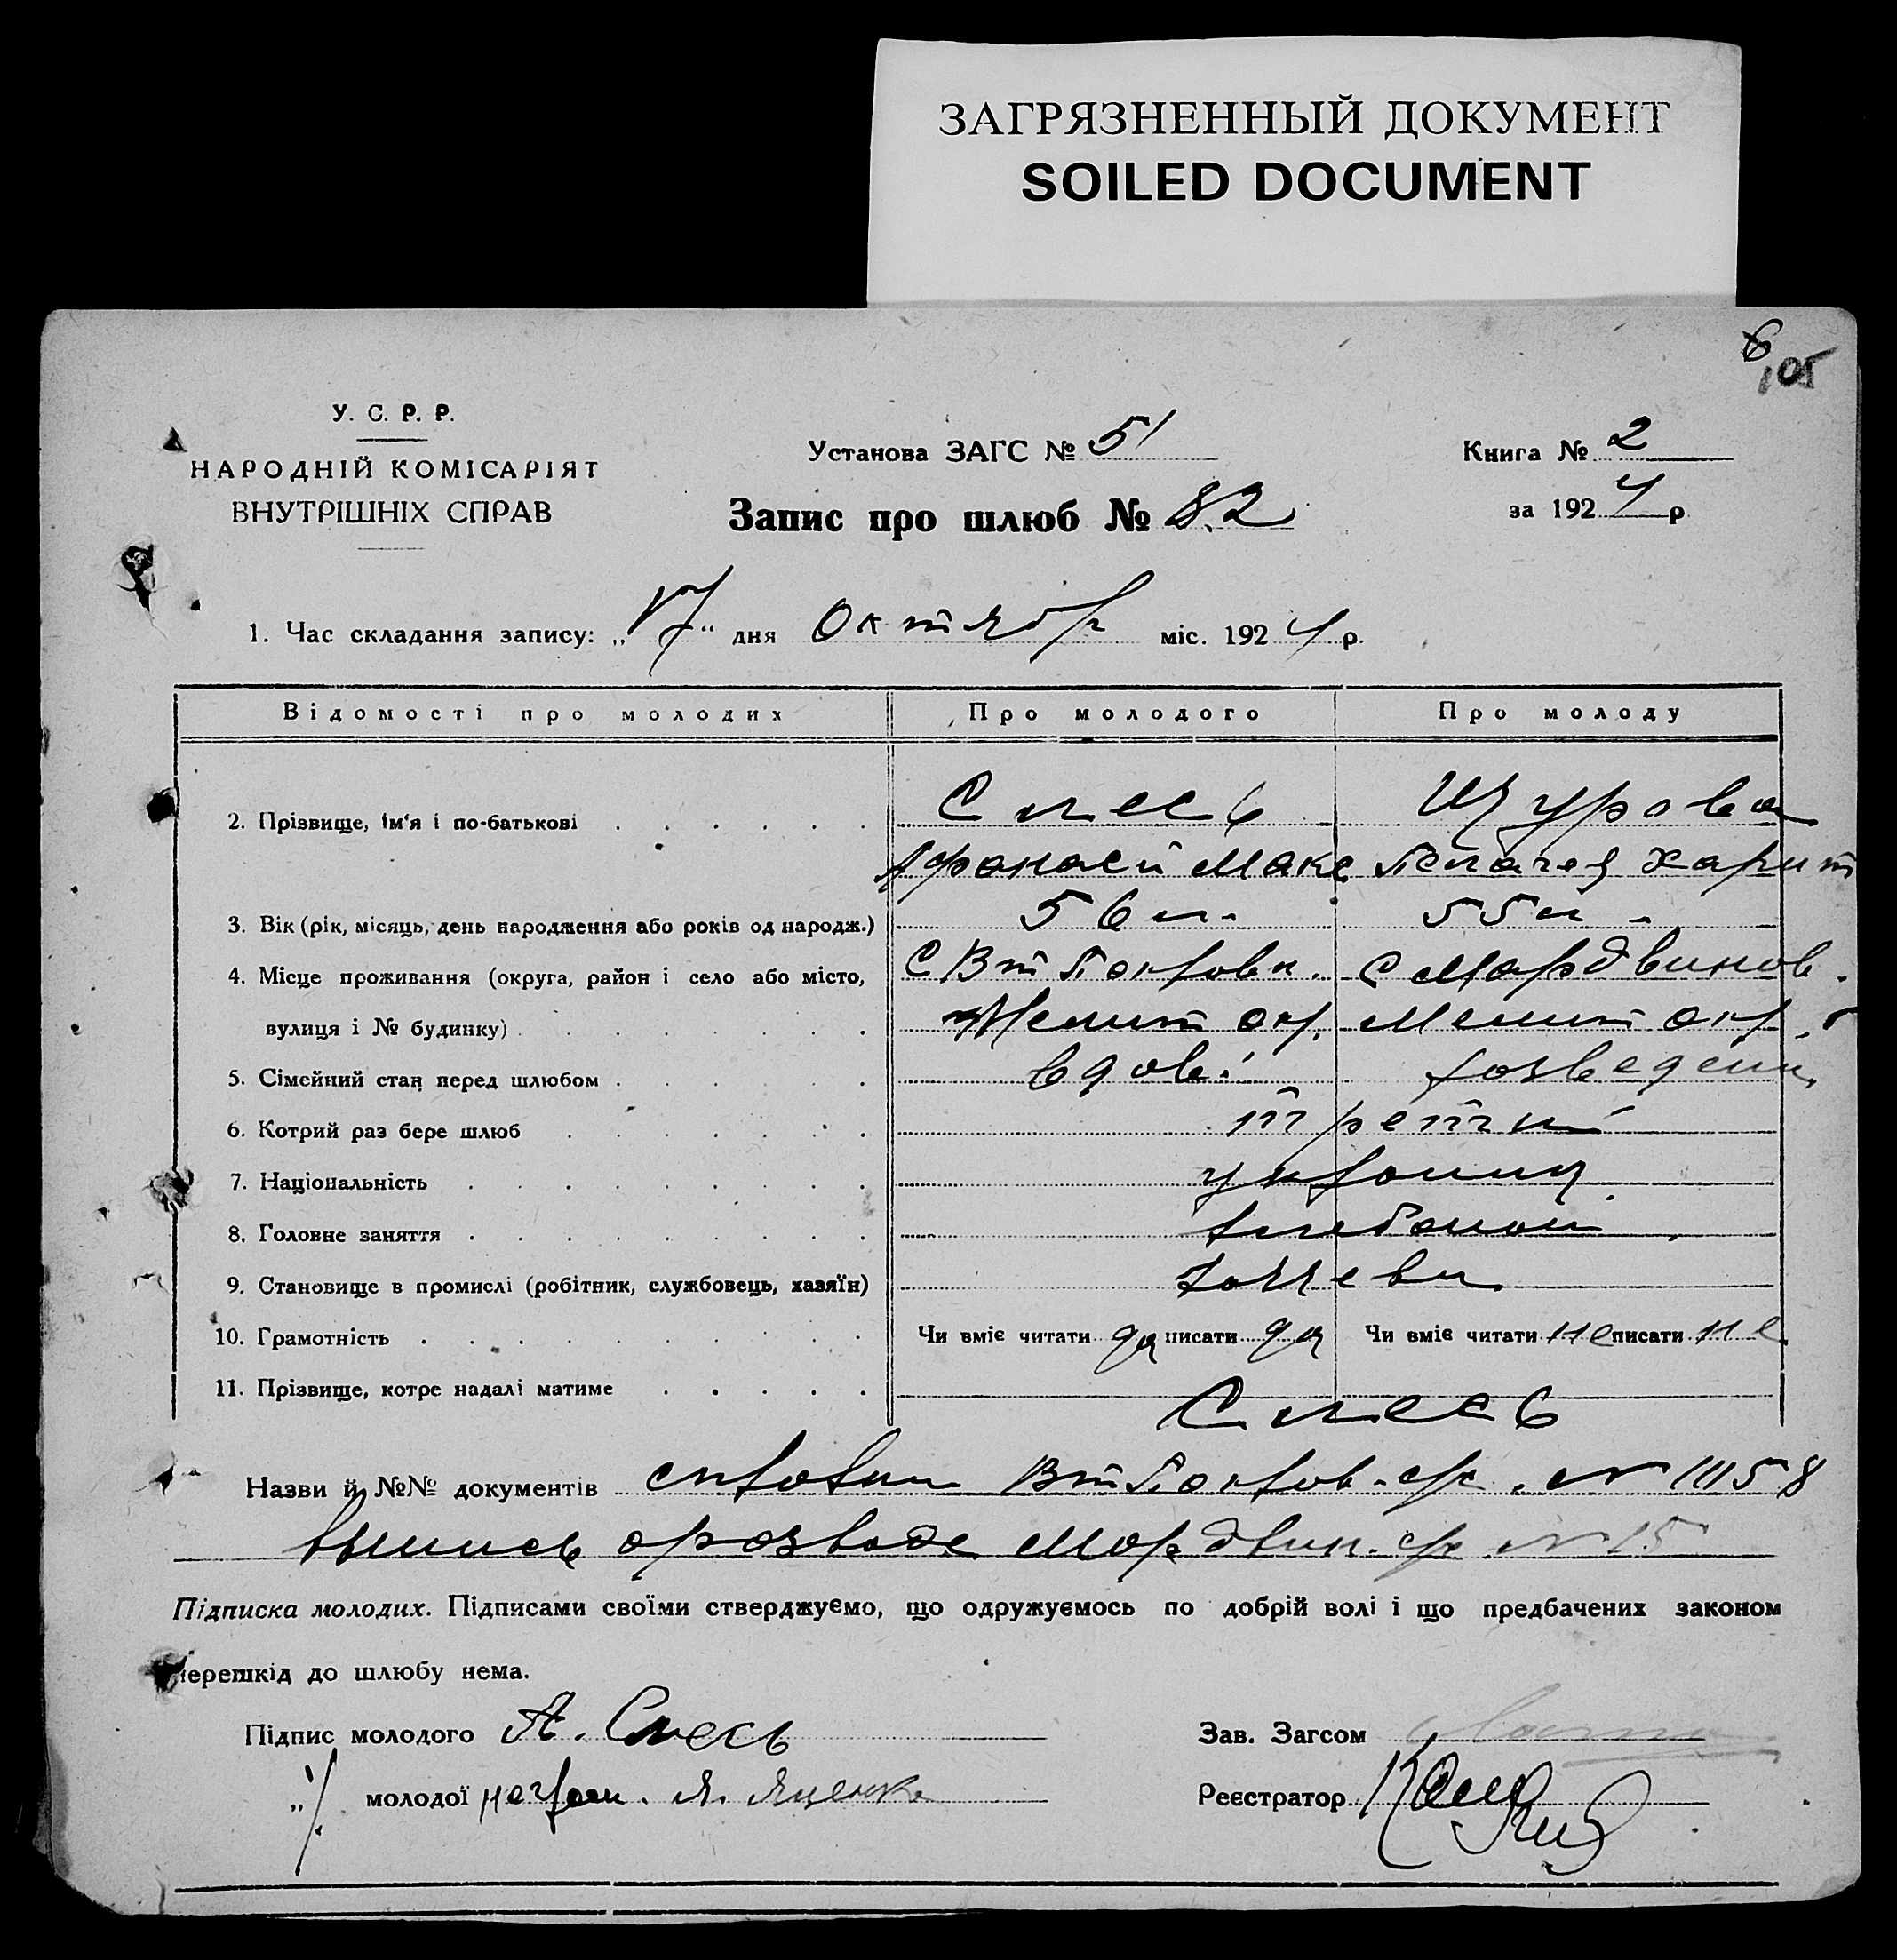 ЗАГРЯЗНЕННЫЙ ДОКУМЕНТ
SOILED DOCUMENT
105
У. С. Р. Р.
НАРОДНІЙ КОМІСАРІЯТ
ВНУТРІШНІХ СПРАВ
Установа ЗАГС № 51
Книга № 2
Запис про шлюб № 82
за 1924 р.
1. Час складання запису: „17“ дня Октябр міс. 1924 р.
Відомості про молодих Про молодого Про молоду
2. Прізвище, ім'я і по-батькові Слесь Щурова
Афанасий Макс Пелагея Харит
3. Вік (рік, місяць, день народження або років од народж.) 56 л. 55 л.
4. Місце проживання (округа, район і село або місто, С Вт Покровк. С Мордвинов.
вулиця і № будинку) Мелит окр. Мелит окр.
5. Сімейний стан перед шлюбом вдов.
6. Котрий раз бере шлюб третий
7. Національність
8. Головне заняття
9. Становище в промислі (робітник, службовець, хазяїн)
10. Грамотність Чи вміє читати да писати да Чи вміє читати не писати не
11. Прізвище, котре надалі матиме Слесь
Назви й №№ документів справки Вт Покров. с/с. №
выпись о розводе Мордвин. с/с № 15
Підписка молодих. Підписами своїми стверджуємо, що одружуємось по добрій волі і що предбачених законом
перешкід до шлюбу нема.
Підпис молодого А. Слесь Зав. Загсом
„ молодої неграм. Яценко Реєстратор